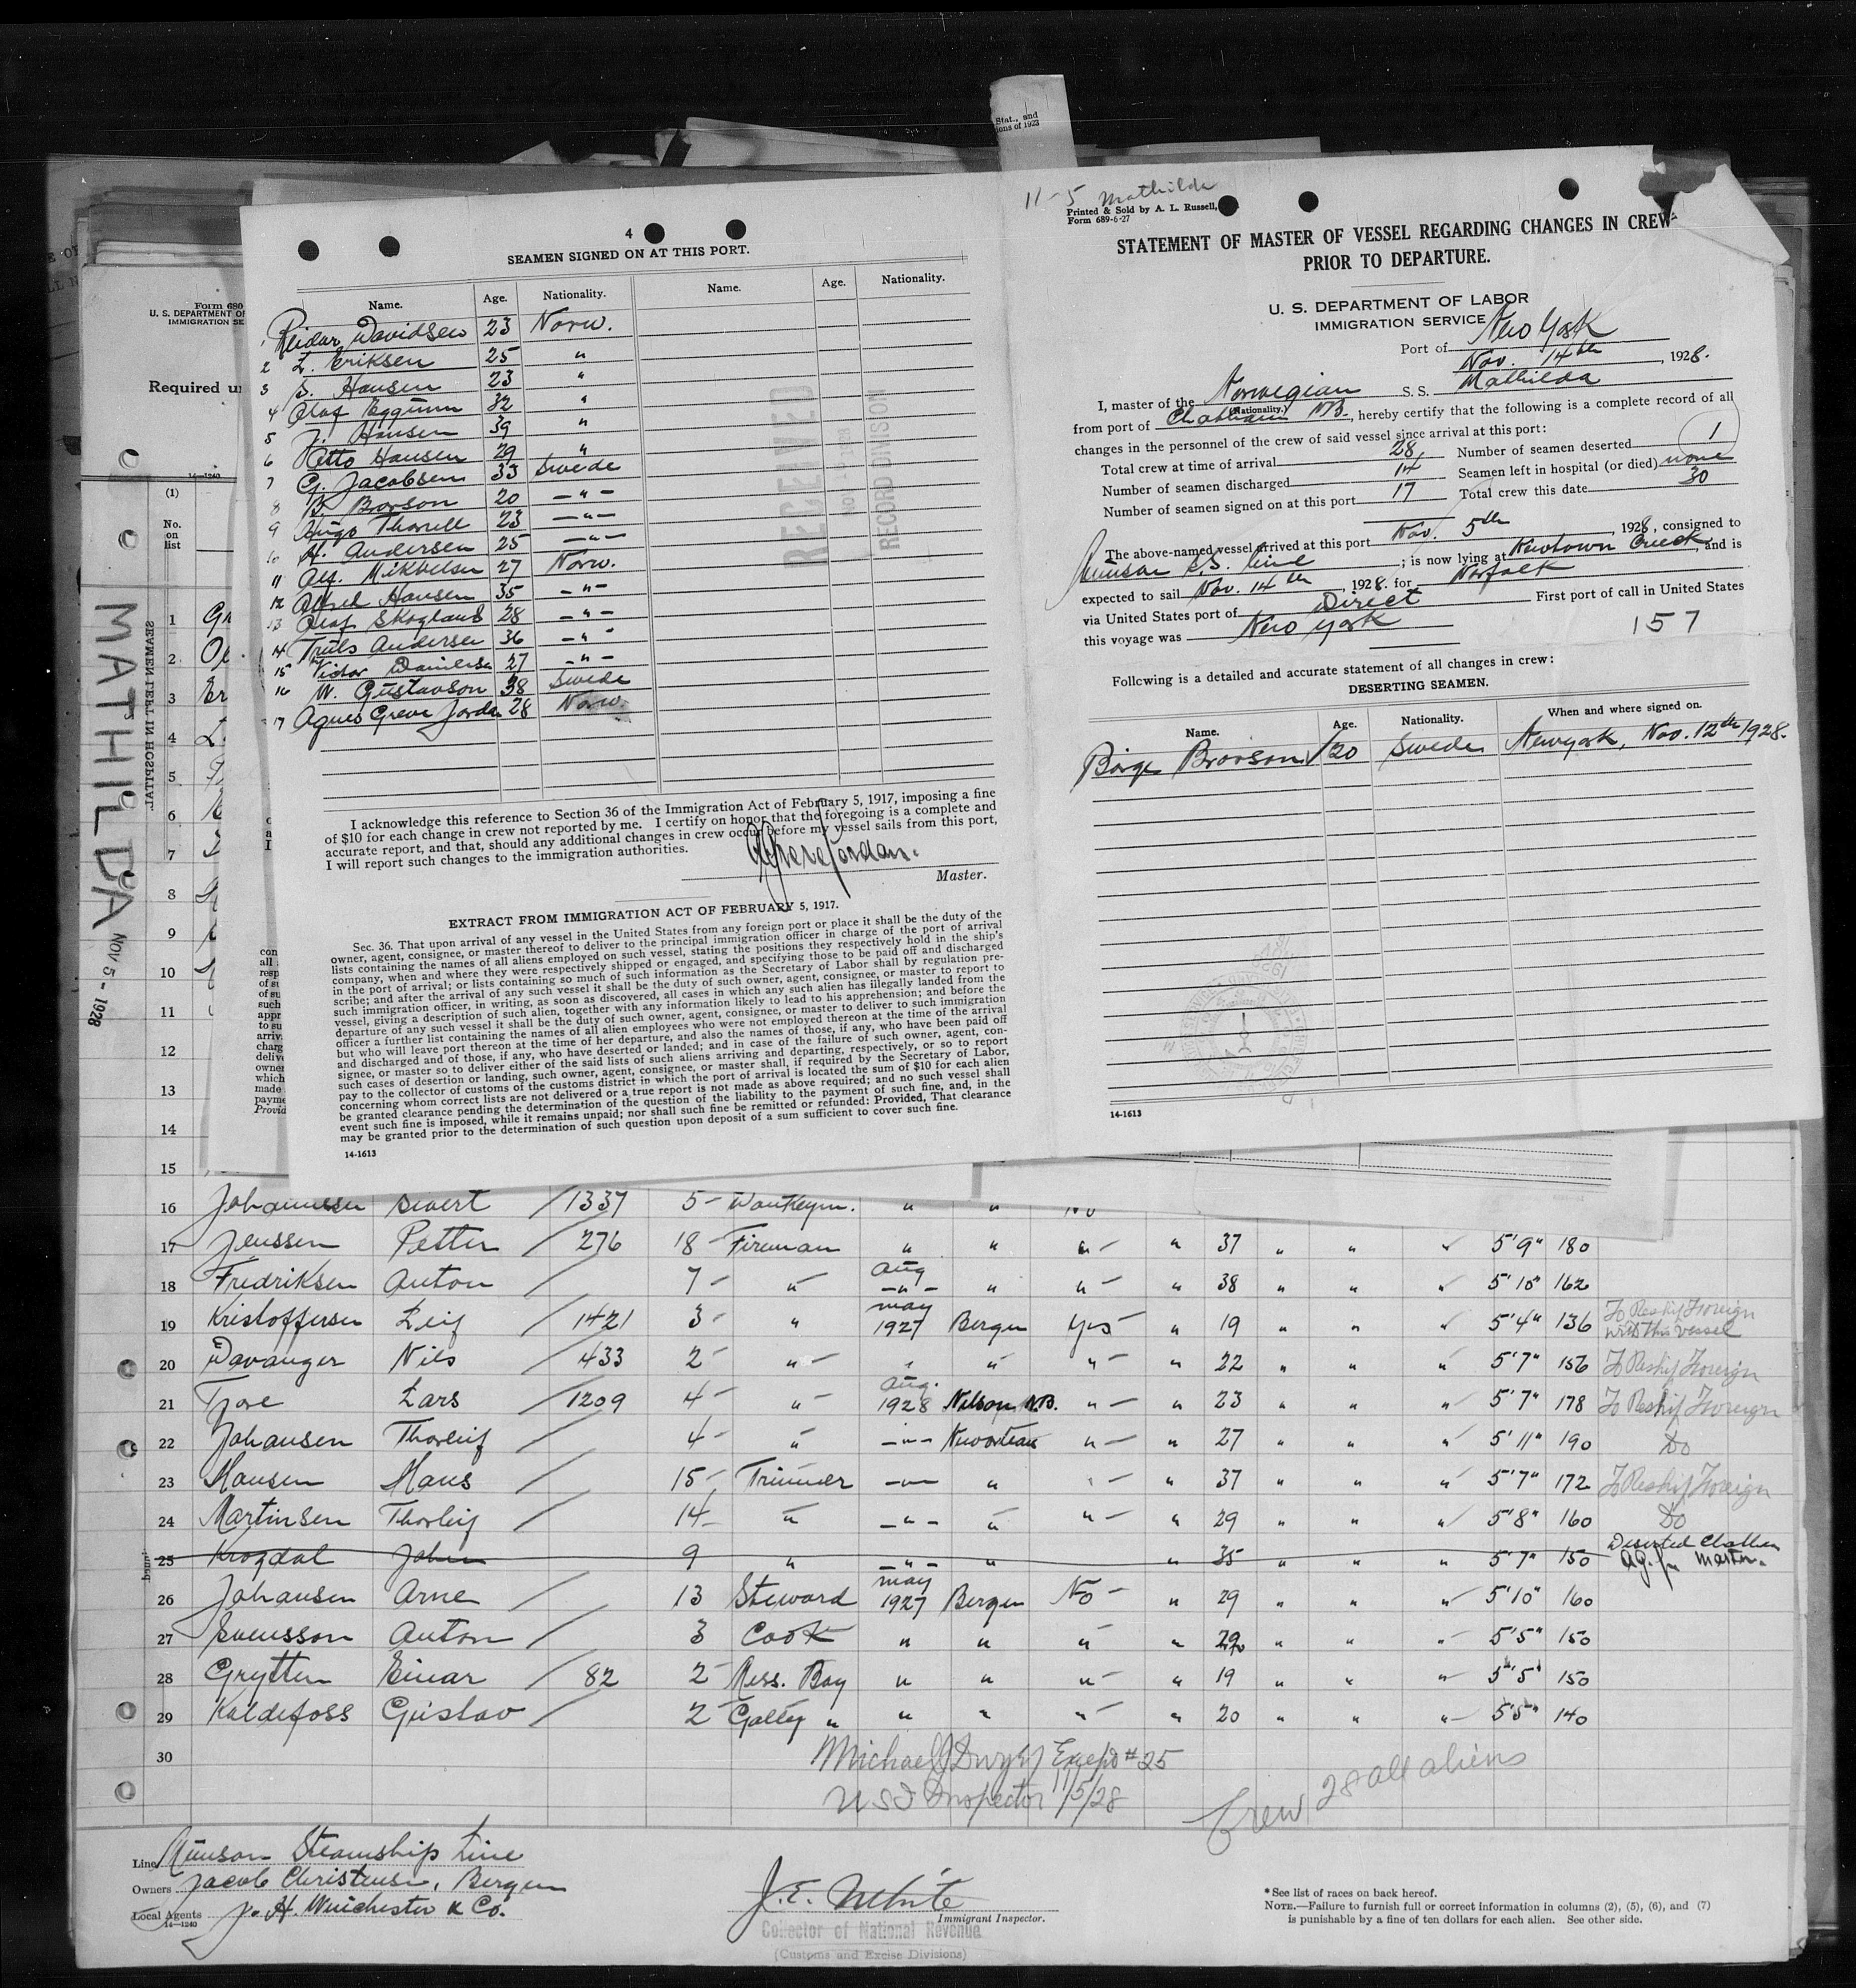 Stat., and
ions of 1923
4
SEAMEN SIGNED ON AT THIS PORT.
Name. Age. Nationality. Name. Age. Nationality.
1 Reidar Davidsen 23 Norw.
2 E. Eriksen 25 "
3 S. Hansen 23 "
4 Olaf Eggum 32 "
5 J. Hansen 39 "
6 Otto Hansen 29 "
7 G. Jacobsen 33 Swede
8 B. Brorson 20 - " -
9 Hugo Thorell 23 - " -
10 H. Andersen 25 - " -
11 Alf. Mikkelsen 27 Norw.
12 Alfred Hansen 35 - " -
13 Olaf Skoglund 28 - " -
14 Truls Andersen 36 - " -
15 Victor Danielsen 27 - " -
16 W. Gustavson 38 Swede
17 Agnes Greve Jordan 28 Norw.
RECEIVED
RECORD DIVISION
I acknowledge this reference to Section 36 of the Immigration Act of February 5, 1917, imposing a fine
of $10 for each change in crew not reported by me. I certify on honor that the foregoing is a complete and
accurate report, and that, should any additional changes in crew occur before my vessel sails from this port,
I will report such changes to the immigration authorities.
Greve Jordan.
Master.
EXTRACT FROM IMMIGRATION ACT OF FEBRUARY 5, 1917.
Sec. 36. That upon arrival of any vessel in the United States from any foreign port or place it shall be the duty of the
owner, agent, consignee, or master thereof to deliver to the principal immigration officer in charge of the port of arrival
lists containing the names of all aliens employed on such vessel, stating the positions they respectively hold in the ship's
company, when and where they were respectively shipped or engaged, and specifying those to be paid off and discharged
in the port of arrival; or lists containing so much of such information as the Secretary of Labor shall by regulation pre-
scribe; and after the arrival of any such vessel it shall be the duty of such owner, agent, consignee, or master to report to
such immigration officer, in writing, as soon as discovered, all cases in which any such alien has illegally landed from the
vessel, giving a description of such alien, together with any information likely to lead to his apprehension; and before the
departure of any such vessel it shall be the duty of such owner, agent, consignee, or master to deliver to such immigration
officer a further list containing the names of all alien employees who were not employed thereon at the time of the arrival
but who will leave port thereon at the time of her departure, and also the names of those, if any, who have been paid off
and discharged and of those, if any, who have deserted or landed; and in case of the failure of such owner, agent, con-
signee, or master so to deliver either of the said lists of such aliens arriving and departing, respectively, or so to report
such cases of desertion or landing, such owner, agent, consignee, or master shall, if required by the Secretary of Labor,
pay to the collector of customs of the customs district in which the port of arrival is located the sum of $10 for each alien
concerning whom correct lists are not delivered or a true report is not made as above required; and no such vessel shall
be granted clearance pending the determination of the question of the liability to the payment of such fine, and, in the
event such fine is imposed, while it remains unpaid; nor shall such fine be remitted or refunded: Provided, That clearance
may be granted prior to the determination of such question upon deposit of a sum sufficient to cover such fine.
14-1613
11-5 Mathilda
Printed & Sold by A. L. Russell,
Form 689-6-27
STATEMENT OF MASTER OF VESSEL REGARDING CHANGES IN CREW
PRIOR TO DEPARTURE.
U. S. DEPARTMENT OF LABOR
IMMIGRATION SERVICE
Port of New York
Nov. 14th, 1928.
I, master of the Norwegian S. S. Mathilda
(Nationality.)
from port of Chatham NB., hereby certify that the following is a complete record of all
changes in the personnel of the crew of said vessel since arrival at this port:
Total crew at time of arrival 28 Number of seamen deserted 1
Number of seamen discharged 14 Seamen left in hospital (or died) none
Number of seamen signed on at this port 17 Total crew this date 30
The above-named vessel arrived at this port Nov. 5th, 1928, consigned to
Munson S.S. Line; is now lying at Newtown Creek and is
expected to sail Nov. 14th, 1928. for Norfolk
via United States port of Direct First port of call in United States
this voyage was New York
157
Following is a detailed and accurate statement of all changes in crew:
DESERTING SEAMEN.
Name. Age. Nationality. When and where signed on.
Börge Brorson 20 Swede Newyork, Nov. 12th 1928.
14-1613
Form 680
U. S. DEPARTMENT OF
IMMIGRATION SE
Required u
14-1240
(1)
No.
on
list
SEAMEN LEFT IN HOSPITAL
MATHILDA
NOV 5 - 1928
1
2
3 Er
4
5
6
7
8
9
10
11
12
13
14
15
con
all
resp
of su
of su
such
appr
to su
arriv
charg
delive
owner
which
made
payme
Provid
16 Johannessen Sivert / 1337 5 - Donkeym. " " No
17 Jenssen Petter / 276 18 - Fireman " " " - " 37 " " " 5'9" 180
18 Fredriksen Anton / 7 - " Aug - " - " " - " 38 " " " 5'10" 162
19 Kristoffersen Leif / 1421 3 - " May 1927 Bergen Yes " 19 " " " 5'4" 136 To Reship Foreign with this vessel
20 Davanger Nils / 433 2 - " - " " " - " 22 " " " 5'7" 156 To Reship Foreign
21 Tjore Lars / 1209 4 - " Aug. 1928 Nelson N.B. " - " 23 " " " 5'7" 178 To Reship Foreign
22 Johansen Thorleif / 4 - " - " - " - " 27 " " " 5'11" 190 Do
23 Hansen Hans / 15 - Trimmer - " - " " - " 37 " " " 5'7" 172 To Reship Foreign
24 Martinsen Thorleif / 14 - " - " - " " - " 29 " " " 5'8" 160 Do
25 Krogdal John 9 " - " - " " 35 " " " 5'7" 150 Deserted Chatham
26 Johansen Arne / 13 Steward May 1927 Bergen No - " 29 " " " 5'10" 160
27 Svensson Anton / 3 Cook " " " " 29 " " " 5'5" 150
28 Grytten Einar / 82 2 - Mess. Boy " " " - " 19 " " " 5'5" 150
29 Kaldefoss Gustav / 2 - Galley " " " " - " 20 " " " 5'5" 140
30
Michael J Dwyer Except #25
U S I Inspector 11/5/28
Crew 28 all aliens
Line Munson Steamship Line
Owners Jacob Christensen, Bergen
Local Agents J. H. Winchester & Co.
14-1240
J. E. White
Immigrant Inspector.
Collector of National Revenue
(Customs and Excise Divisions)
*See list of races on back hereof.
NOTE.—Failure to furnish full or correct information in columns (2), (5), (6), and (7)
is punishable by a fine of ten dollars for each alien. See other side.